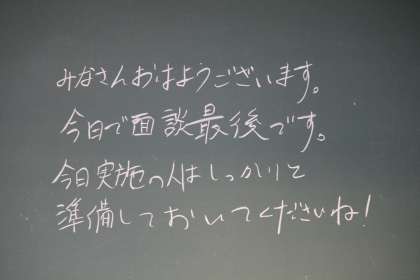 みなさんおはようございます。
今日で面談最後です。
今日実施の人はしっかりと
準備しておいてくださいね!